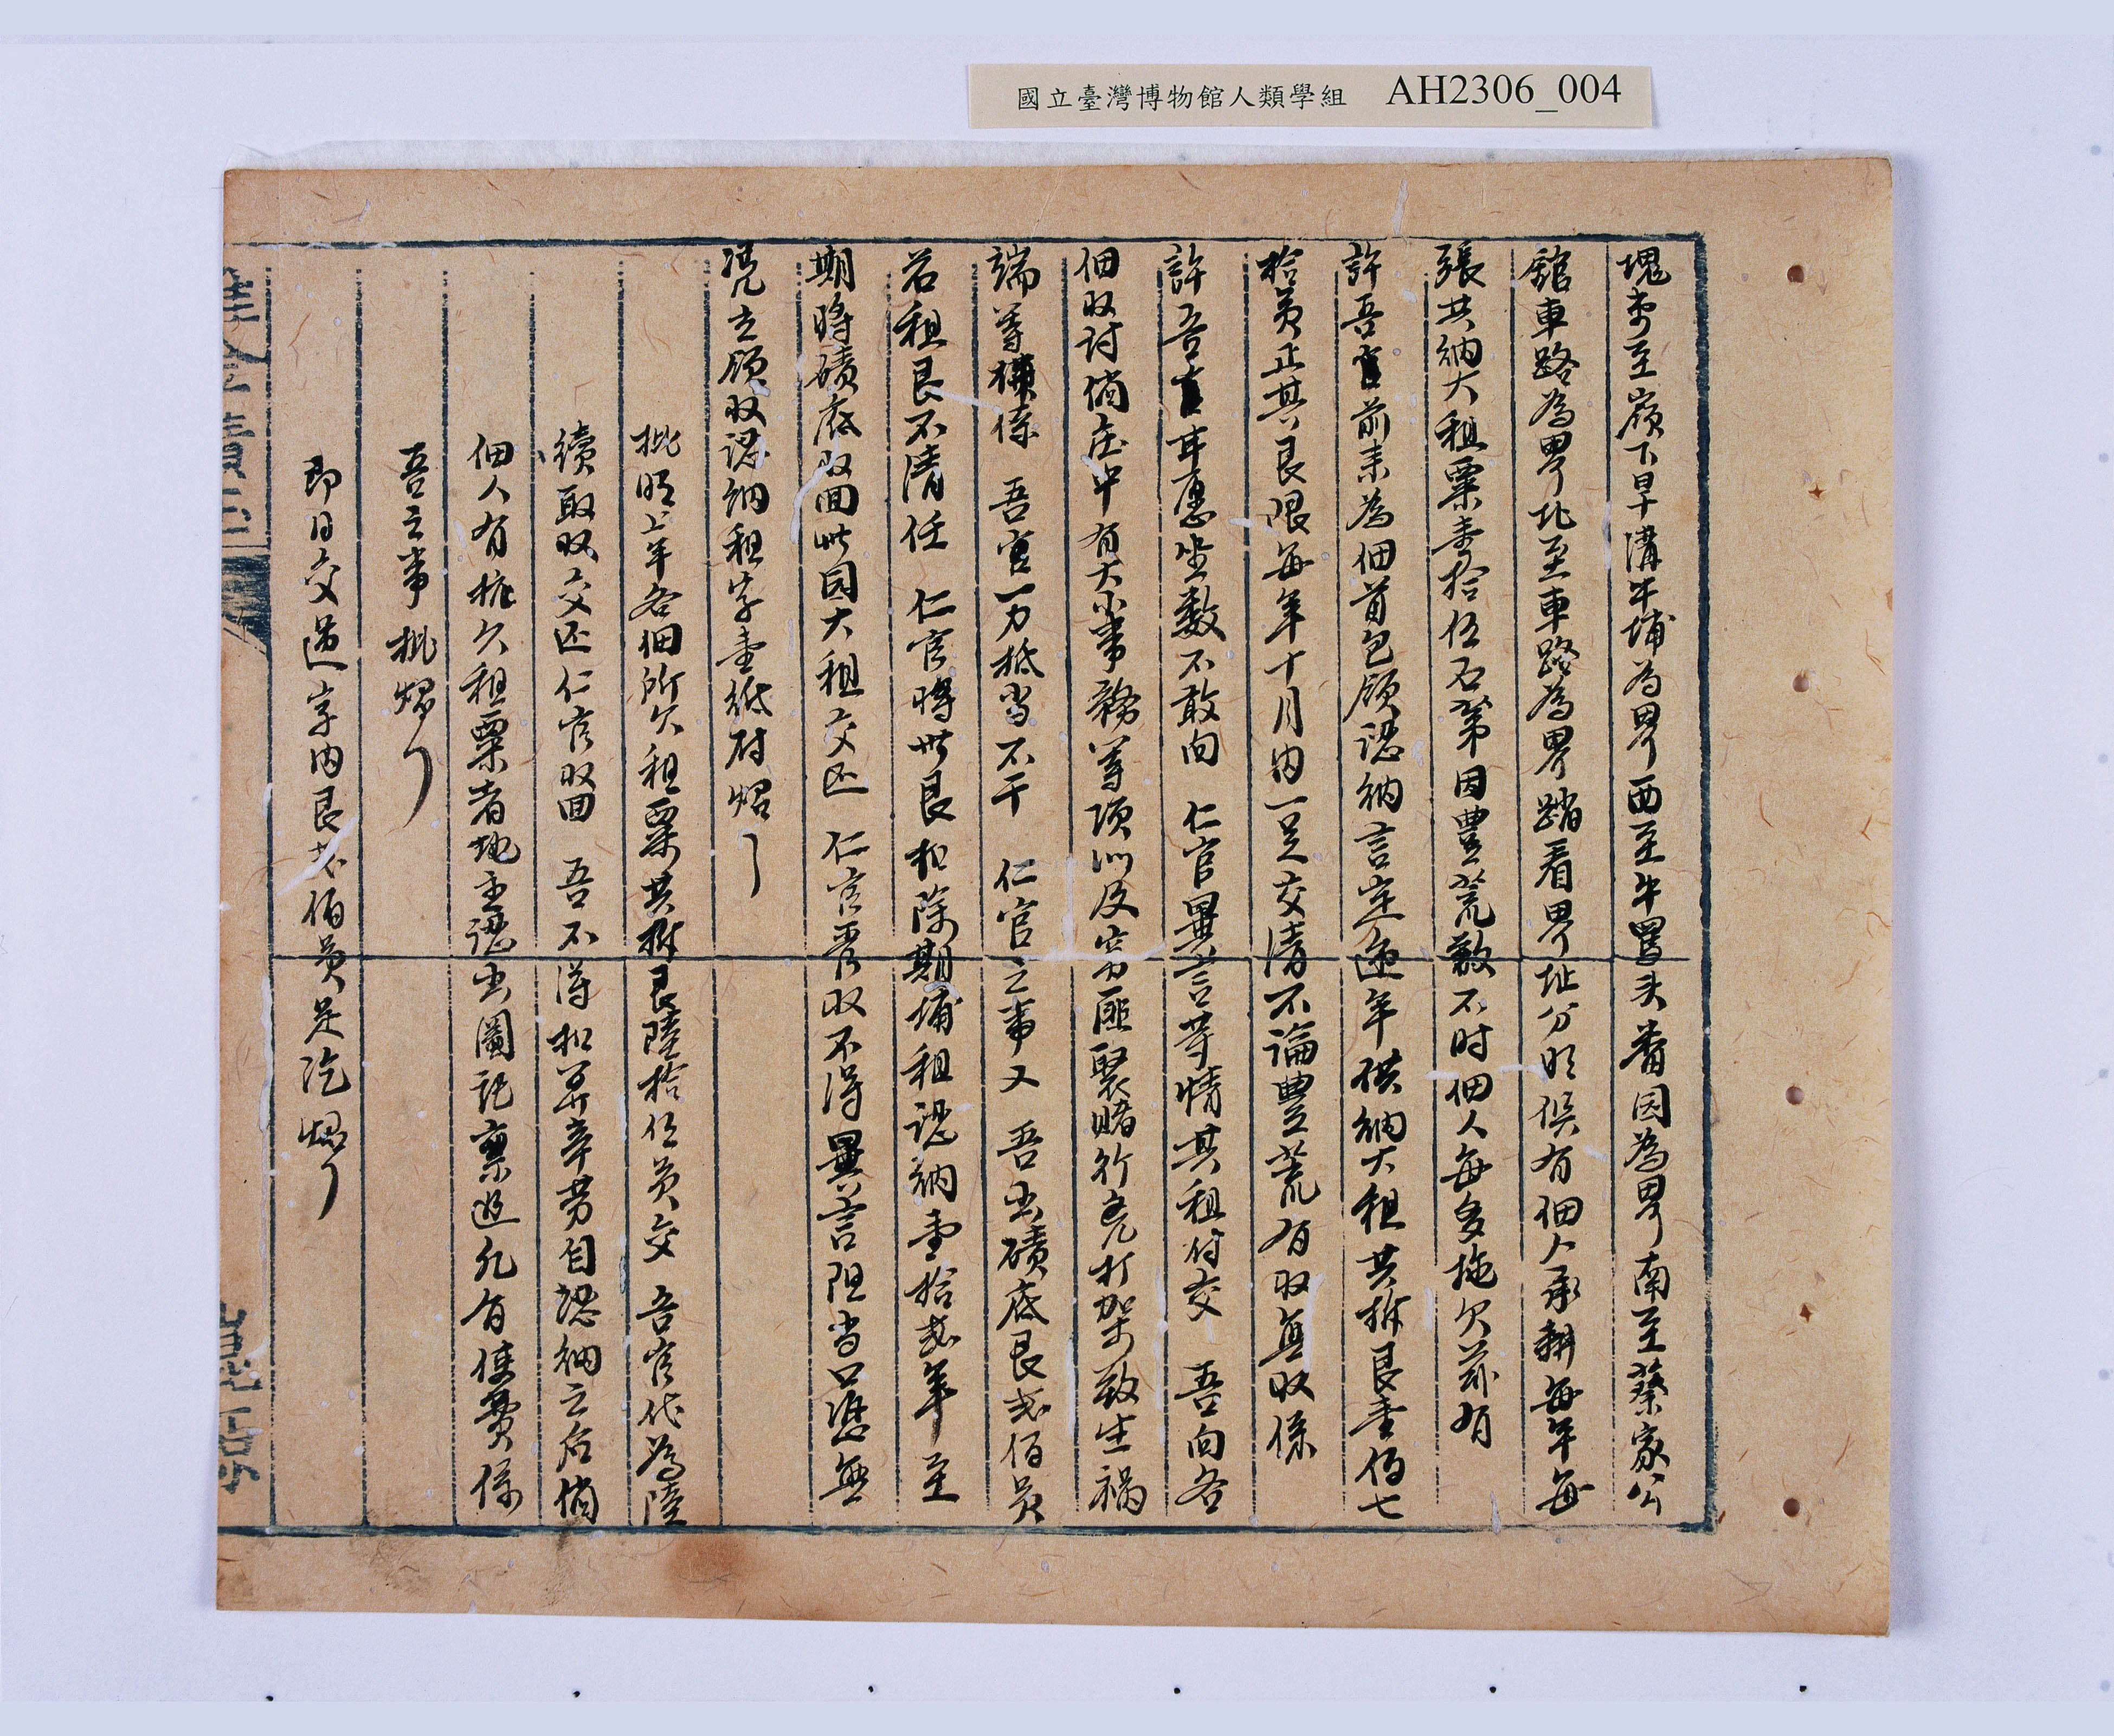 國立臺灣博物館人類學組 AH2306_004
塊東至嶺下旱溝牛埔為界西至牛罵头番田為界南至蔡家公
館車路為界北至車路為界踏看界址分明俱有佃人承耕每年每
張共納大租粟叁拾伍石第因豊荒敷不时佃人每多拖欠茲有
許吾官前来為佃首包領認納言定遞年供納大租共折艮壹佰七
拾員正其艮限每年十月内一足交清不論豊荒有収無収係
許吾官耳應坐数不敢向 仁官異言等情其租付交 吾向各
佃収討倘庄中有大小事務等項以及窝匪聚賭行兇打架致生禍
端等獘係 吾官一力抵当不干 仁官之事又 吾出磧底艮弍佰員
若租艮不清任 仁官將此艮扣除期埔租認納壹拾弍年至
期將磧底収回此田大租交还 仁官管収不得異言阻当口憑無
凭立領収認納租字壹紙附炤
批明上年各佃所欠租粟共折艮陸拾伍員交 吾官代為陸
續取収交还仁官収回 吾不得扣算辛劳自認納之后倘
佃人有拖欠租粟者地主認出圖記禀追凡有使費係
吾之事批炤
即日交過字内艮弍佰員足訖炤